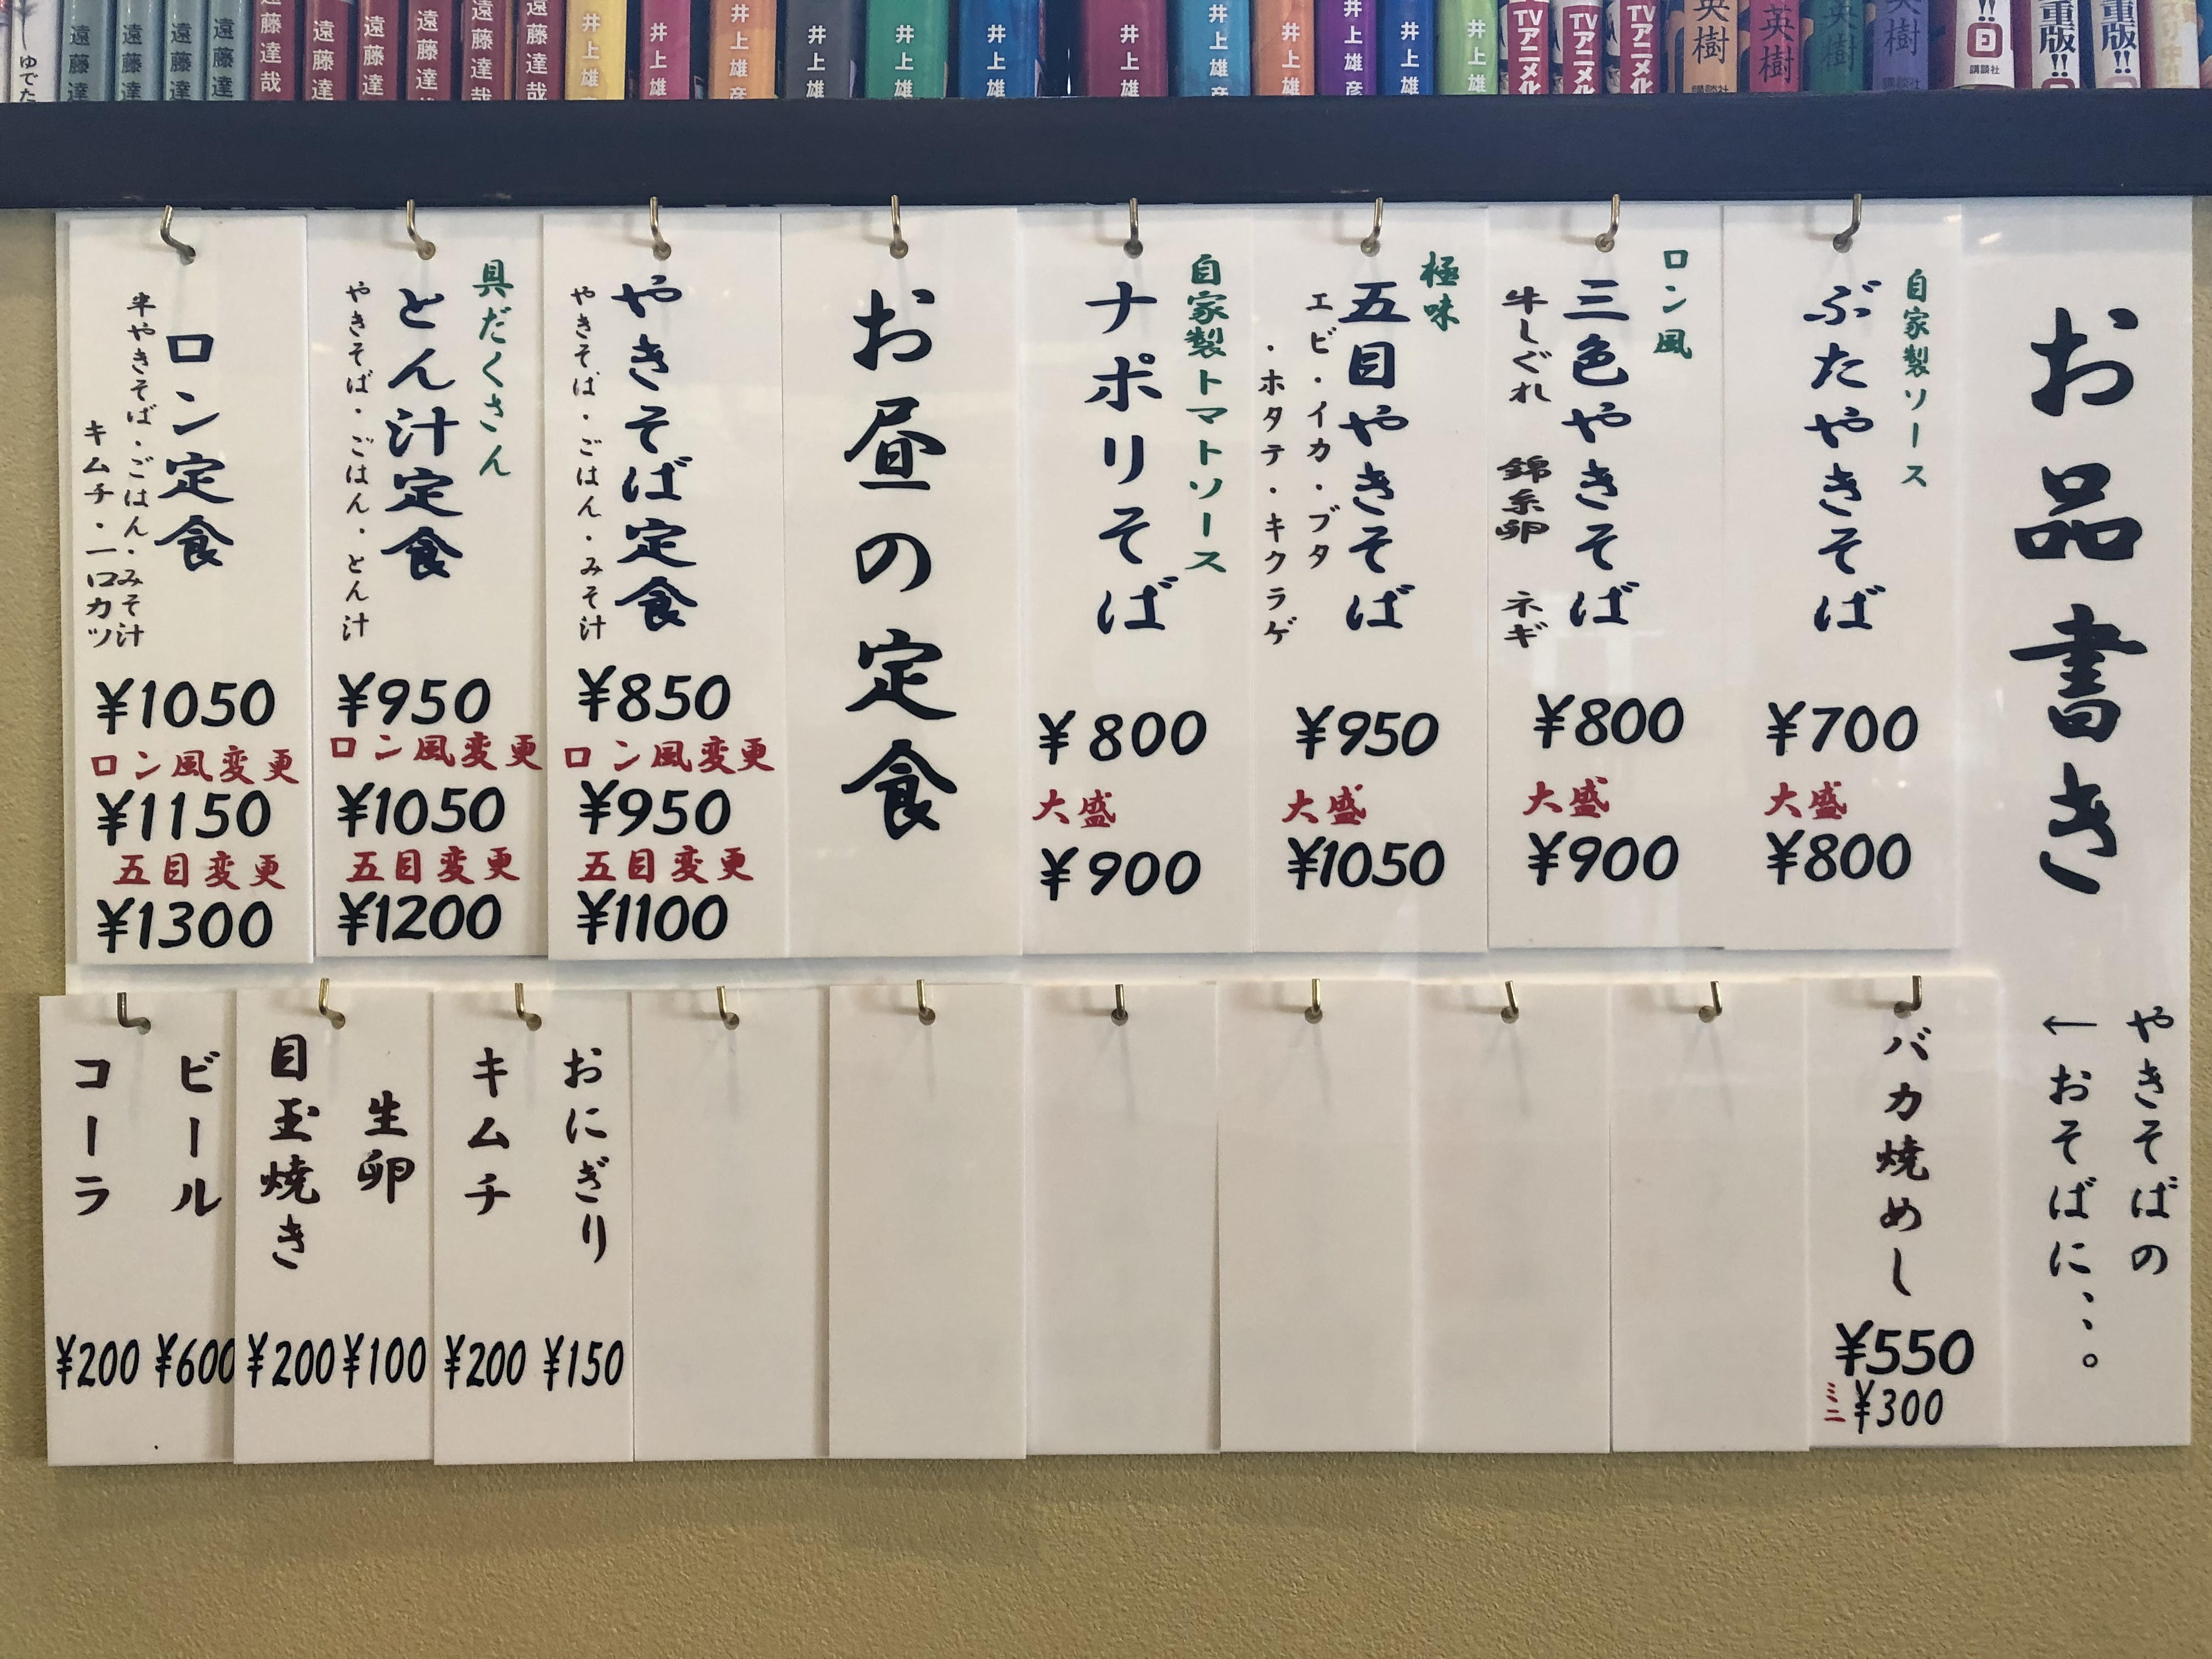 ゆでた
遠藤達
遠藤達
遠藤達
遠藤達
遠藤達哉
遠藤達
遠藤達
遠藤達
遠藤達哉
遠藤達哉
井上雄彦
井上雄
井上雄彦
井上雄
井上雄
井上雄
井上雄
井上雄彦
井上雄
井上雄彦
井上雄
井上雄
TVアニメ化
TVアニメル
TVアニメ化
英樹
講談社
英樹
英樹
英樹
講談社
!!
日
講談社
重版!!
重版!!
お品書き
やきそばの
←おそばに、、、。
自家製ソース
ぶたやきそば
¥700
大盛
¥800
ロン風
三色やきそば
牛しぐれ 錦糸卵 ネギ
¥800
大盛
¥900
極味
五目やきそば
エビ・イカ・ブタ
・ホタテ・キクラゲ
¥950
大盛
¥1050
自家製トマトソース
ナポリそば
¥800
大盛
¥900
お昼の定食
やきそば定食
やきそば・ごはん・みそ汁
¥850
ロン風変更
¥950
五目変更
¥1100
具だくさん
とん汁定食
やきそば・ごはん・とん汁
¥950
ロン風変更
¥1050
五目変更
¥1200
ロン定食
半やきそば・ごはん・みそ汁
キムチ・一口カツ
¥1050
ロン風変更
¥1150
五目変更
¥1300
バカ焼めし
¥550
ミニ ¥300
おにぎり
¥150
キムチ
¥200
生卵
¥100
目玉焼き
¥200
ビール
¥600
コーラ
¥200